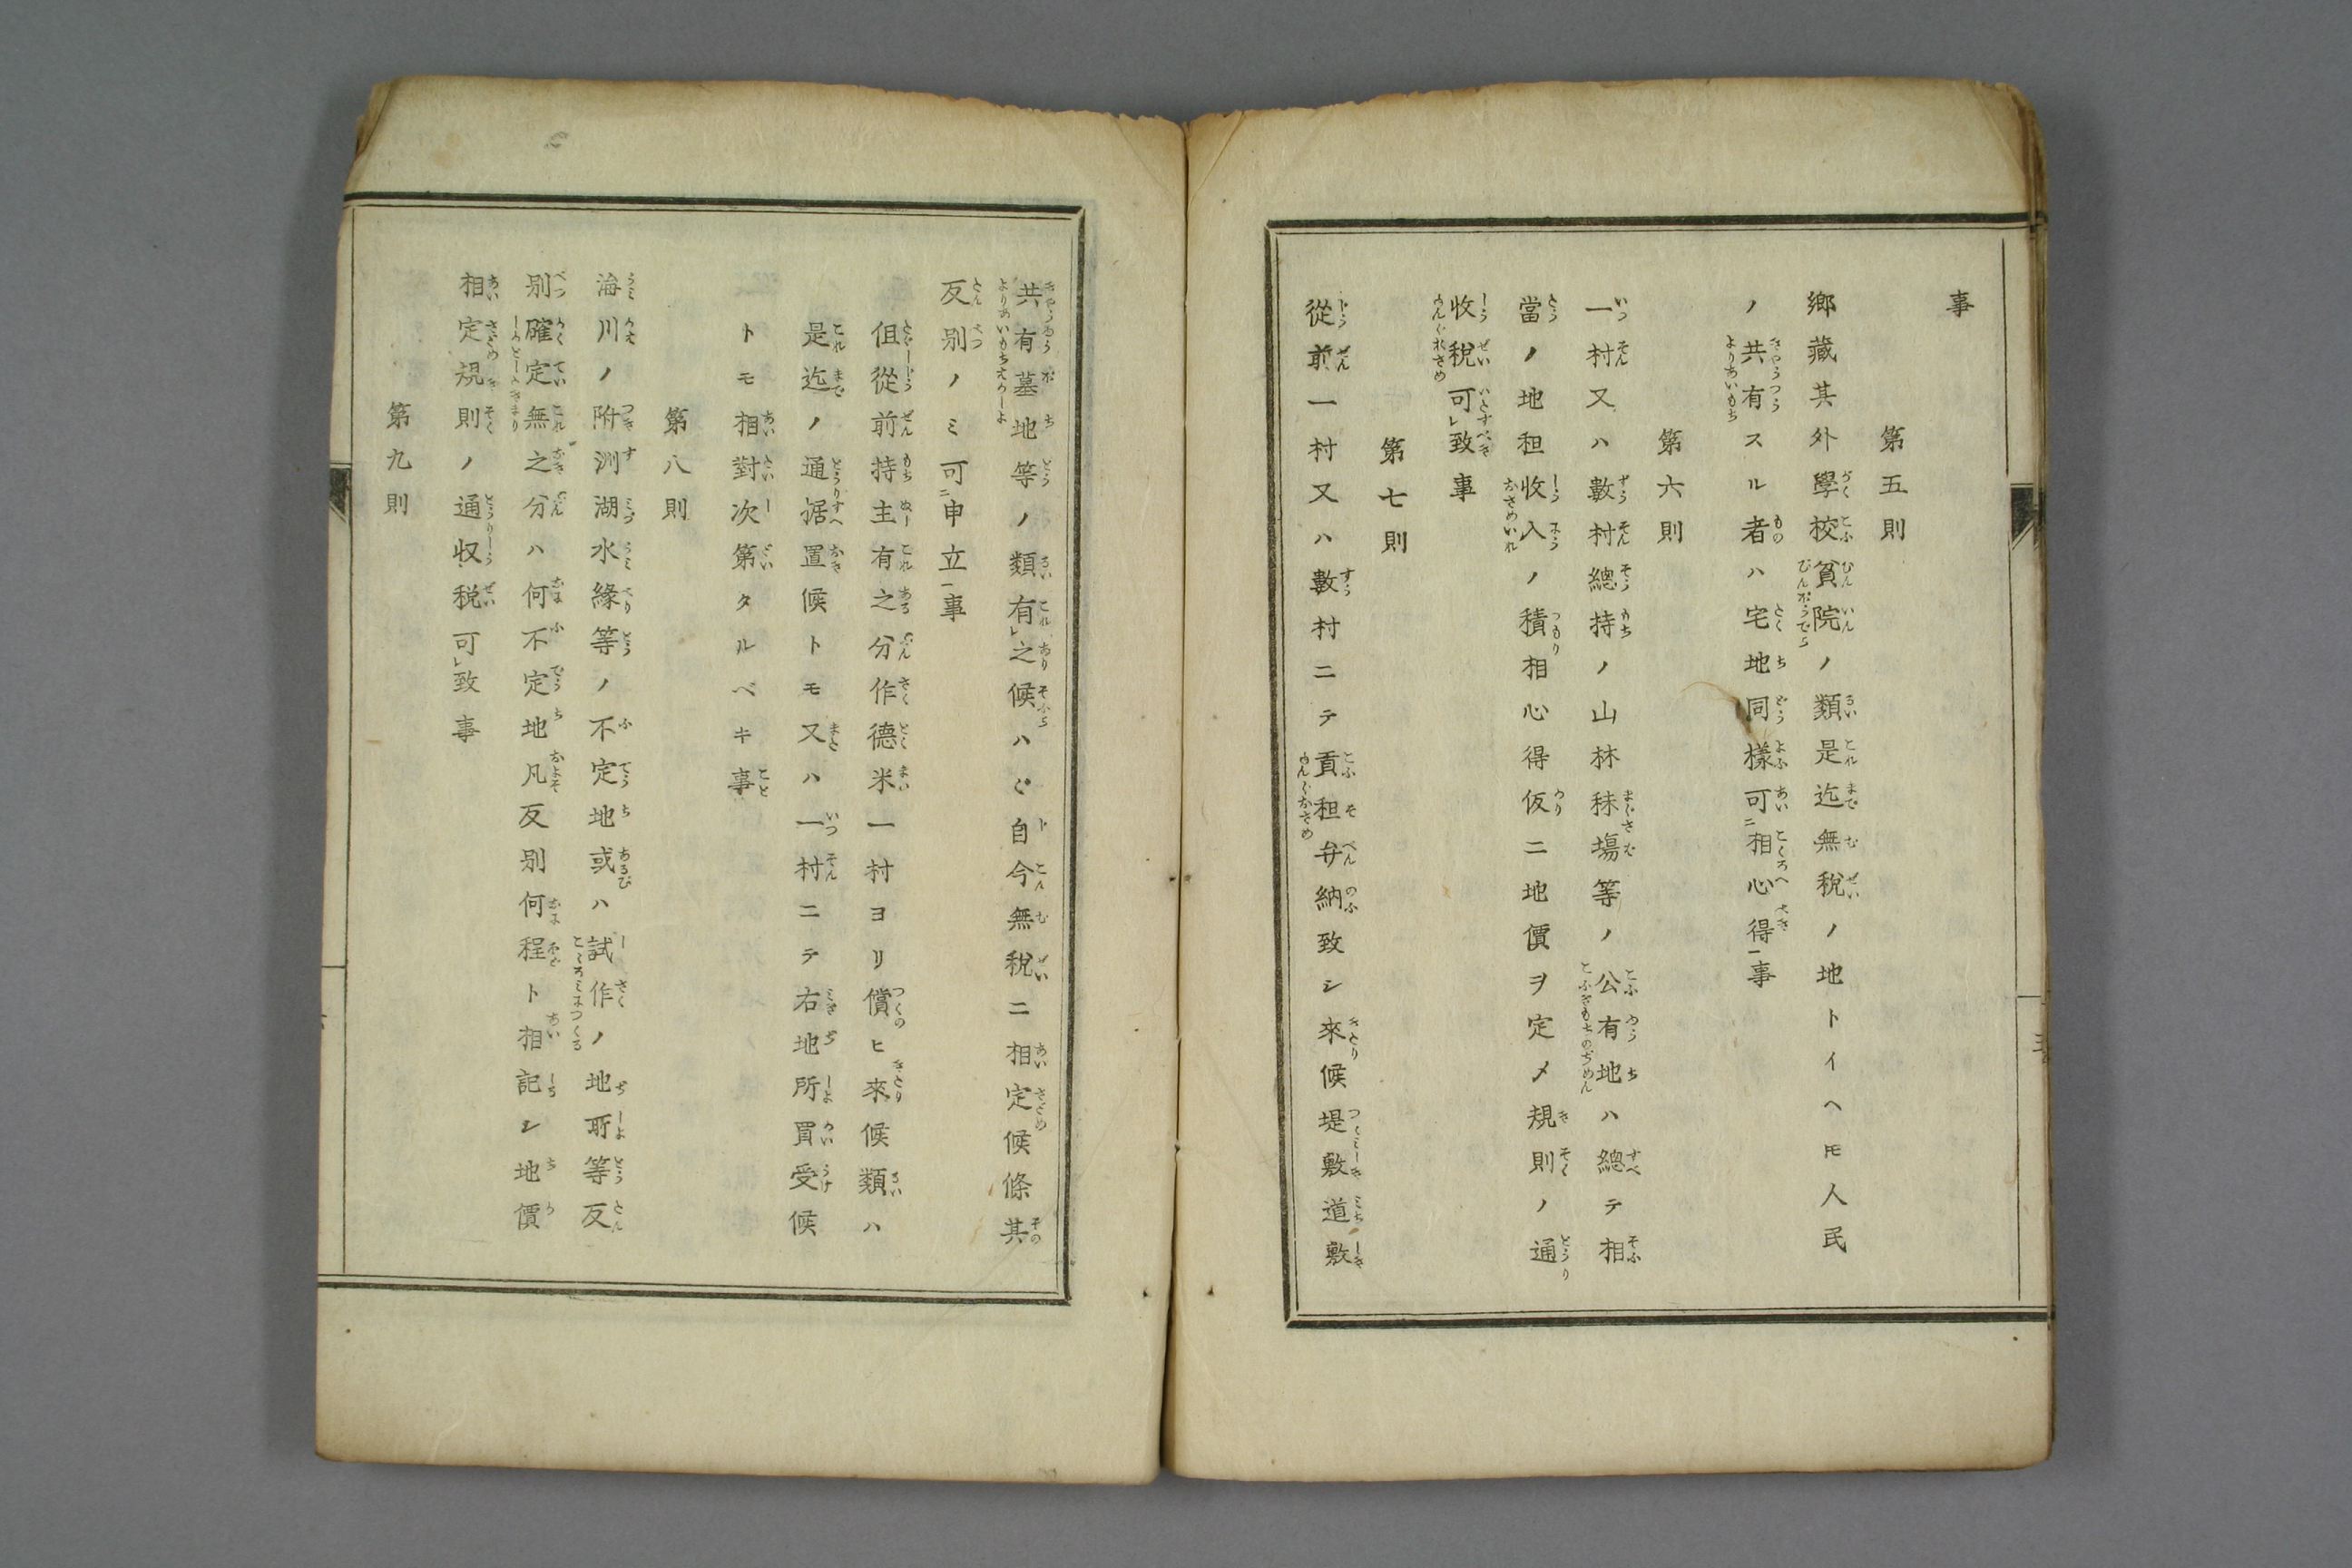 事
第五則
鄕藏其外學校貧院ノ類是迄無稅ノ地トイヘ𪜈人民
ノ共有スル者ハ宅地同樣可㆓相心得㆒事
第六則
一村又ハ數村總持ノ山林秣塲等ノ公有地ハ總テ相
當ノ地租收入ノ積相心得仮ニ地價ヲ定メ規則ノ通
收稅可㆑致事
第七則
從前一村又ハ數村ニテ貢租弁納致シ來候堤敷道敷
共有墓地等ノ類有㆑之候ハヾ自今無稅ニ相定候條其
反別ノミ可㆓申立㆒事
伹從前持主有之分作德米一村ヨリ償ヒ來候類ハ
是迄ノ通据置候トモ又ハ一村ニテ右地所買受候
トモ相對次第タルベキ事
第八則
海川ノ附洲湖水緣等ノ不定地或ハ試作ノ地所等反
別確定無之分ハ何不定地凡反別何程ト相記シ地價
相定規則ノ通収税可㆑致事
第九則